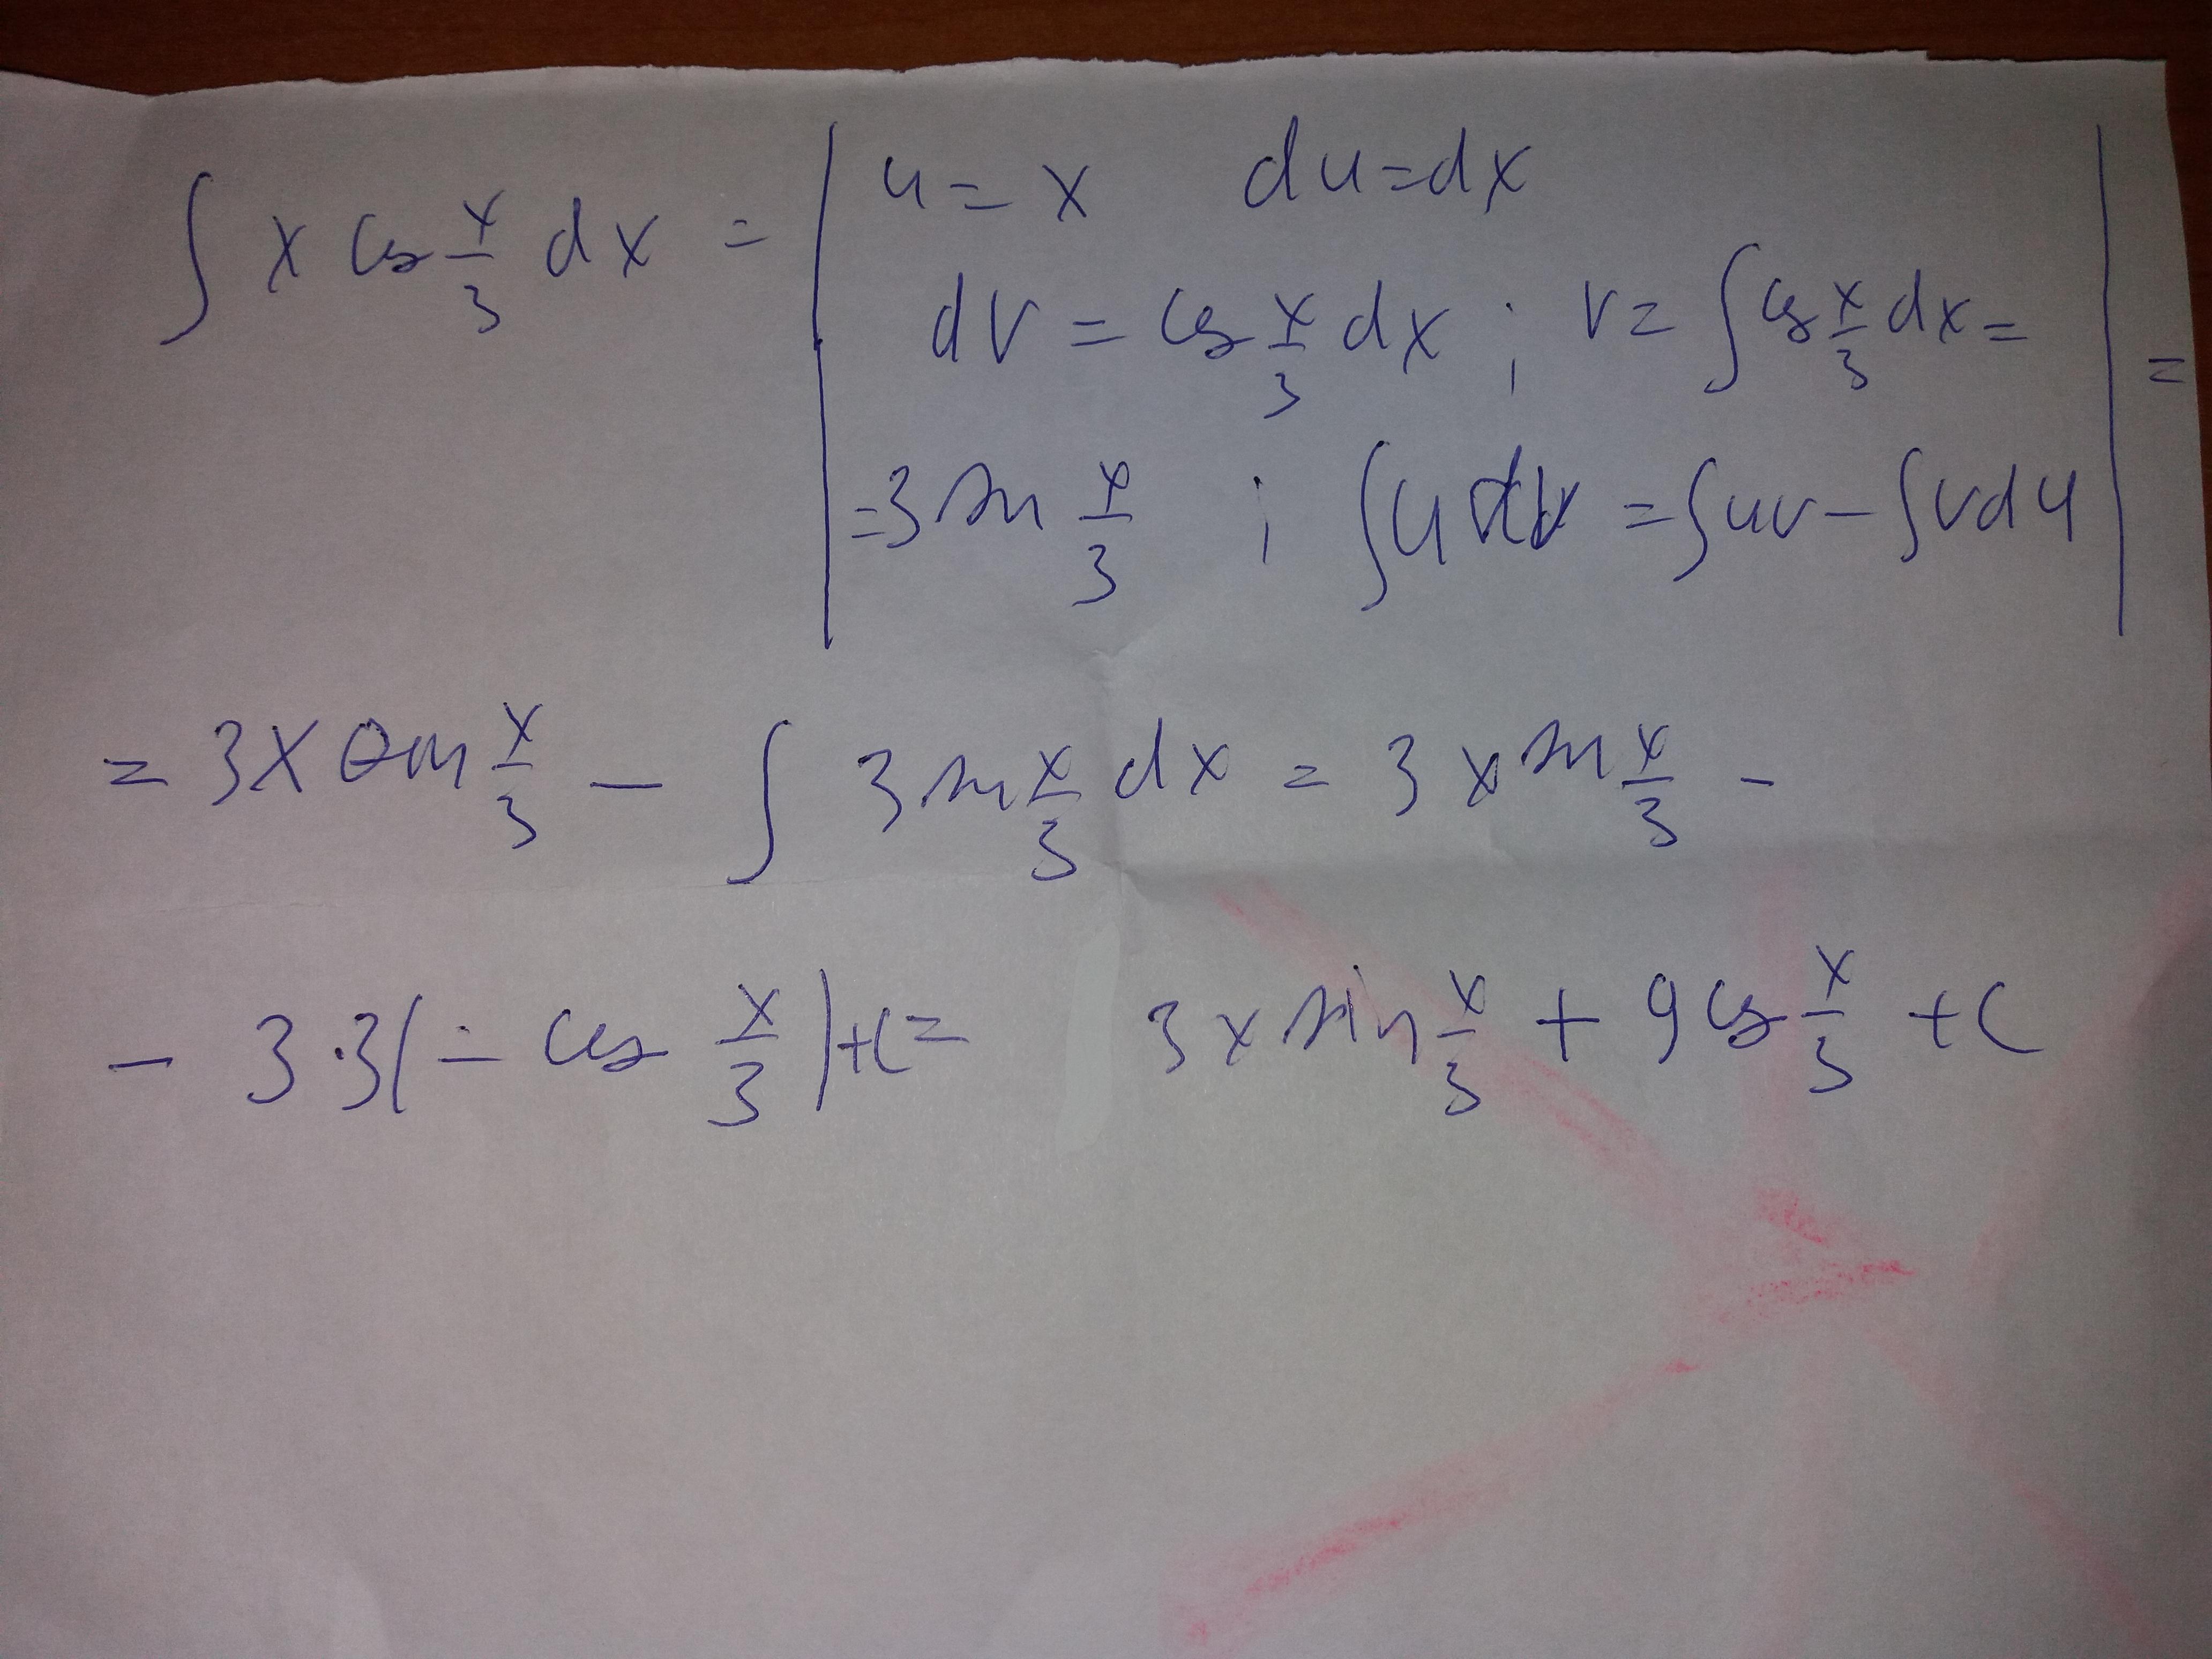 ∫ x cos x/3 dx = | u = x du = dx
dv = cos x/3 dx ; v = ∫ cos x/3 dx = | =
= 3 sin x/3 ; ∫ u dv = ∫ uv − ∫ v du
= 3x sin x/3 − ∫ 3 sin x/3 dx = 3 x sin x/3 −
− 3·3(− cos x/3) + C = 3x sin x/3 + 9 cos x/3 + C